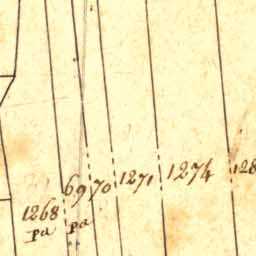 69 70 1271 1274 128
1268
pa pa